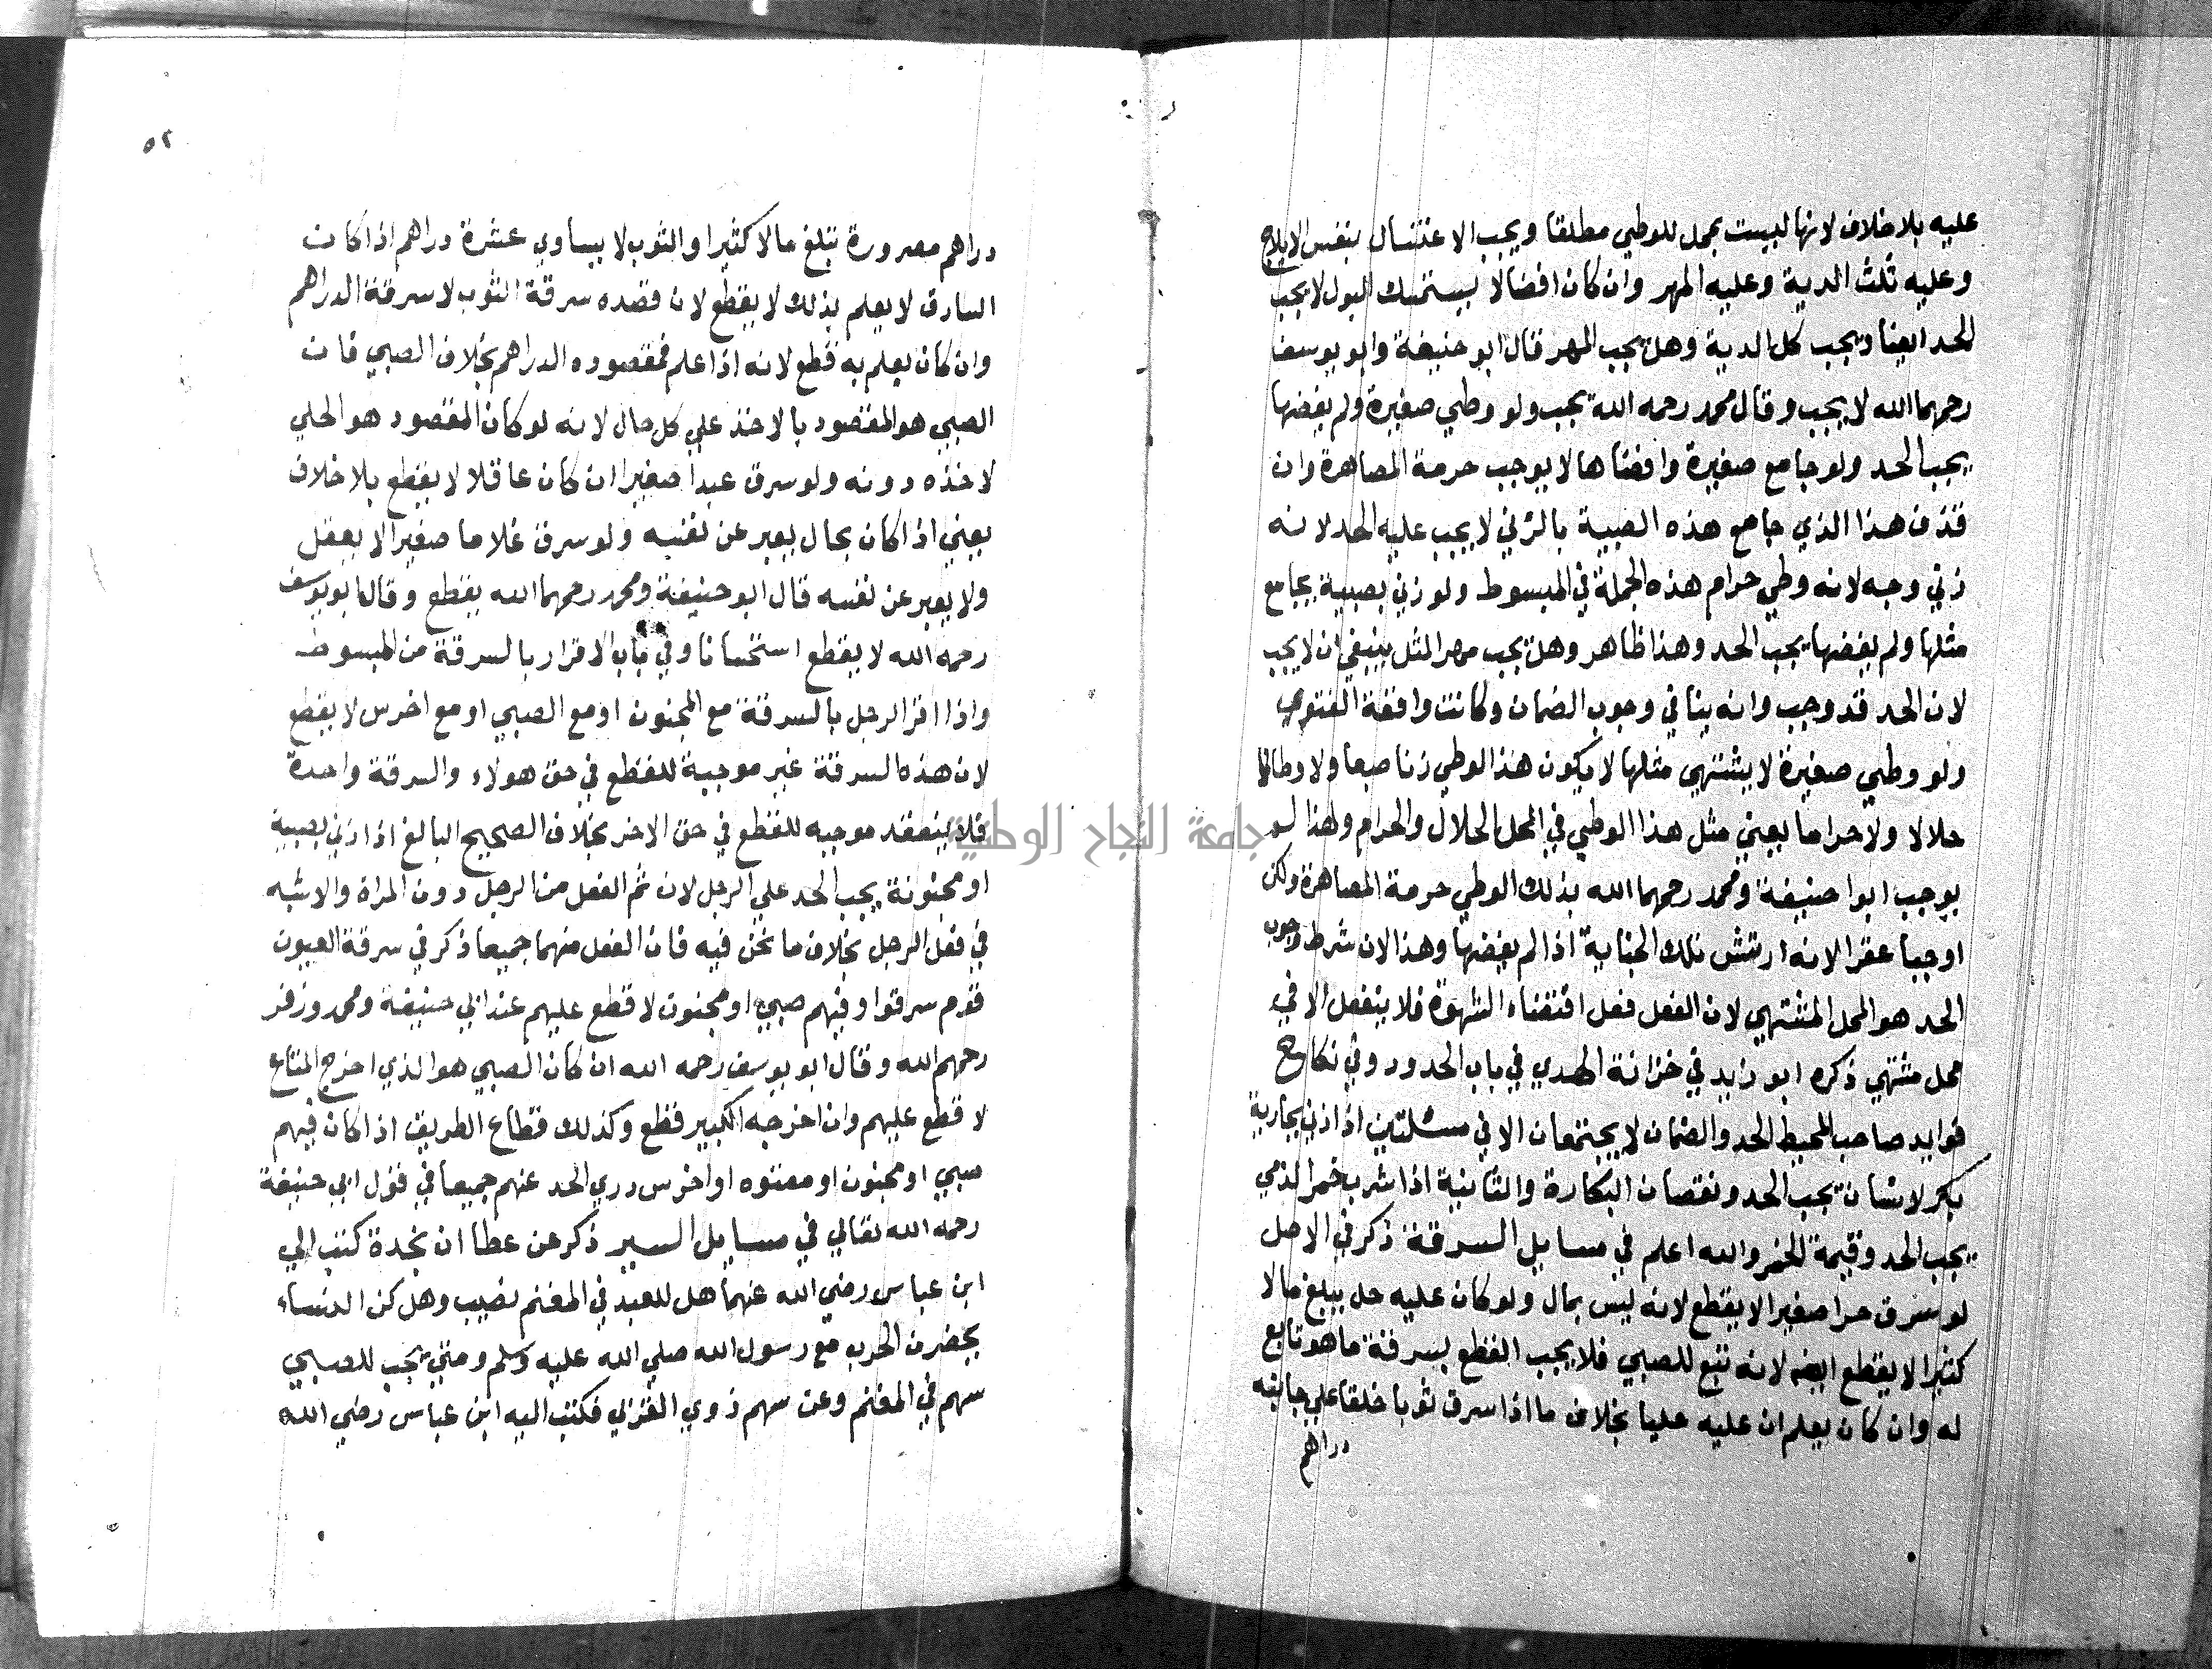 عليه بلا خلاف لانها ليست بمحل للوطي مطلقا ويجب الاغتسال بنفس الايلاج
وعليه ثلث الدية وعليه المهر وان كان افضالا يستمسك البول لا يجب
الحد ايضا ويجب كل الدية وهل يجب المهر قال ابو حنيفة وابو يوسف
رحمهما الله لا يجب وقال محمد رحمه الله يجب ولو وطي صغيرة ولم يفضها
يجب الحد ولو جامع صغيرة وافضاها لا يوجب حرمة المصاهرة وان
قذف هذا الذي جامع هذه الصبية بالزني لا يجب عليه الحد لانه
زني وجه لانه وطي حرام هذه الجملة في المبسوط ولو زني بصبية يجامع
مثلها ولم يفضها يجب الحد وهذا ظاهر وهل يجب مهر المثل ينبغي ان لا يجب
لان الحد قد وجب وانه ينافي وجوب الضمان وكانت واقعة الفتوي
ولو وطي صغيرة لا يشتهي مثلها لا يكون هذا الوطي زنا
حلالا ولا حراما يعني مثل هذا الوطي في المحل الحلال والحرام ولهذا لو
يوجب ابوا حنيفة ومحمد رحمهما الله بذلك الوطي حرمة المصاهرة ولكن
اوجبا عقرا لانه ارتش تلك الجناية اذا لم يفضها وهذا لان شرط وجوب
الحد هو المحل المشتهي لان الفعل فعل اقتضاء الشهوة فلا ينفعل الا في
محل مشتهي ذكره ابو زايد في خزانة الهدي في باب الحدود وفي نكاح
فوايد صاحب المحيط الحد والضمان لا يجتمعان الا في مسئلتين اذا زني بجارية
بكر لانسان يجب الحد ونقصان البكارة والثانية اذا شرب خمرا لذمي
يجب الحد وقيمة الخمر والله اعلم في مسايل السرقة ذكر في الاصل
لو سرق حرا صغيرا لا يقطع لانه ليس بمال ولو كان عليه حل يبلغ مالا
كثيرا لا يقطع ايضه لانه تبع للصبي فلا يجب القطع بسرقة ما هو تابع
له وان كان يعلم ان عليه حليا بخلاف ما اذا سرق ثوبا خلقا علي جانبه
دراهم
٥٢
دراهم مصرورة تبلغ مالا كثيرا والثوب لا يساوي عشرة دراهم اذا كان
السارق لا يعلم بذلك لا يقطع لان قصده سرقة الثوب لا سرقة الدراهم
وان كان يعلم به قطع لانه اذا علم فمقصوده الدراهم بخلاف الصبي فان
الصبي هو المقصود بالاخذ علي كل حال لانه لو كان المقصود هو الحلي
لاخذه دونه ولو سرق عبدا صغيرا ان كان عاقلا لا يقطع بلا خلاف
يعني اذا كان بحال يعبر عن نفسه ولو سرق غلاما صغيرا لا يعقل
ولا يعبر عن نفسه قال ابو حنيفة ومحمد رحمهما الله يقطع وقال ابو يوسف
رحمه الله لا يقطع استحسانا وفي باب الاقرار بالسرقة من المبسوط
واذا اقر الرجل بالسرقة مع المجنون او مع الصبي او مع اخرس لا يقطع
لان هذه السرقة غير موجبة للقطع في حق هولاء والسرقة واحدة
فلا ينعقد موجبه للقطع في حق الاخر بخلاف الصحيح البالغ اذا زني بصبية
او مجنونة يجب الحد علي الرجل لان ثم الفعل من الرجل دون المراة والاشبه
في فعل الرجل بخلاف ما نحن فيه فان الفعل منهما جميعا ذكر في سرقة العيون
قوم سرقوا وفيهم صبي او مجنون لا قطع عليهم عند ابي حنيفة ومحمد وزفر
رحمهم الله وقال ابو يوسف رحمه الله ان كان الصبي هو الذي اخرج المتاع
لا قطع عليهم وان اخرجه الكبير قطع وكذلك قطاع الطريق اذا كان فيهم
صبي او مجنون او معتوه او اخرس دري الحد عنهم جميعا في قول ابي حنيفة
رحمه الله تعالي في مسايل السير ذكر عن عطا ان نجدة كتب الي
ابن عباس رضي الله عنهما هل للعبد في المغنم نصيب وهل كن النساء
يحضرن الحرب مع رسول الله صلي الله عليه وسلم ومتي يجب للصبي
سهم في المغنم وعن سهم ذوي القربي فكتب اليه ابن عباس رضي الله
جامعة النجاح الوطنية